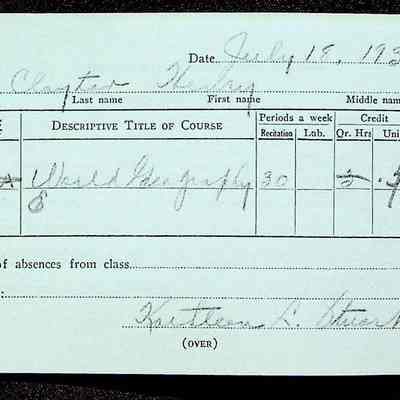 Date July 18, 193
Clayton
Last name First name Middle nam
DESCRIPTIVE TITLE OF COURSE Periods a week Credit
Recitation Lab. Qr. Hrs Uni
World Geography 30 5 .5
of absences from class
L. Stuart
(OVER)